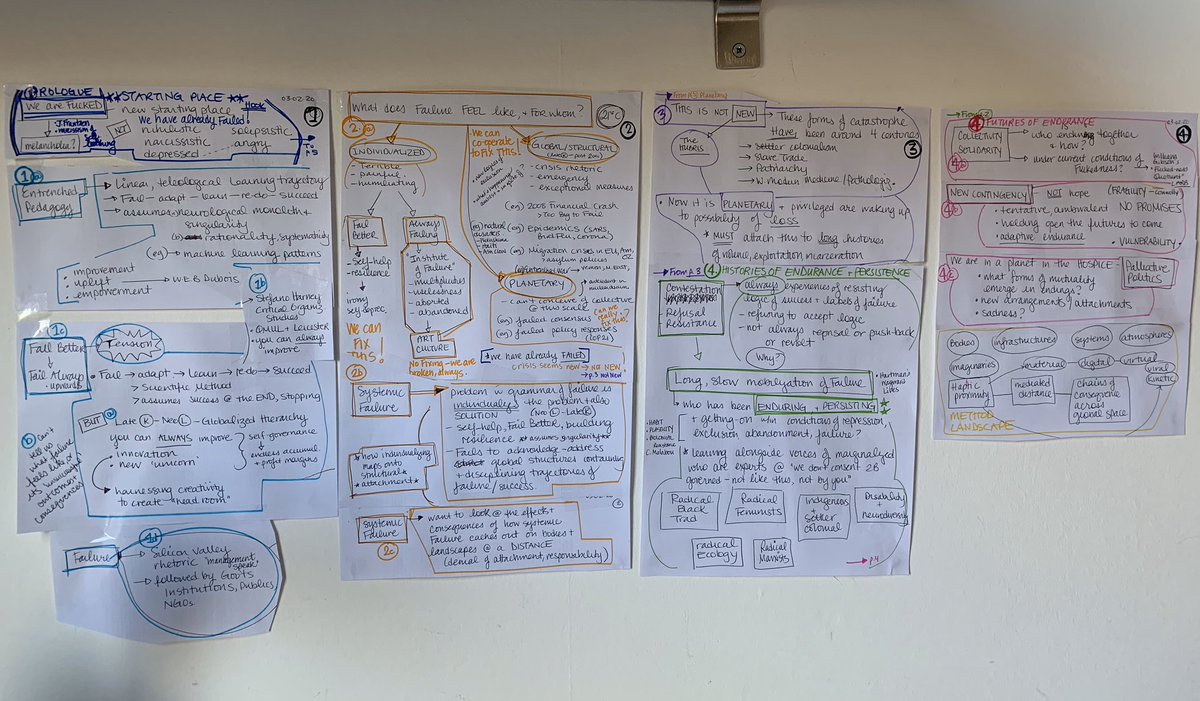 PROLOGUE
We are FUCKED
** STARTING PLACE **
03-02-20
1
new starting place
Hook
We have already Failed!
melancholia?
NOT
nihilistic
solepsistic
narcissistic
angry
depressed
1a
Entrenched
Pedagogy
→ Linear, teleological learning trajectory
→ Fail - adapt - learn - re-do - succeed
→ assumes neurological monolith +
singularity
rationality, systematicity
(eg) → machine learning patterns
• improvement
• uplift
• empowerment
→ W.E.B Dubois
1b
• Stefano Harney
Critical Organis.
Studies
• QMUL + Leicester
• you can always
improve
1c
Fail Better
↓
Fail Always
- upwards
Tension
• Fail → adapt → Learn → re-do → Succeed
> Scientific Method
> assumes success @ the END, stopping
BUT
Late K - Neo L - Globalized Hierarchy
you can ALWAYS improve
• innovation
• new 'unicorn'
self-governance
↓
endless accumul.
+ profit margins
→ harnessing creativity
to create "head room"
can't
tell us
what failure
feels like or
its uneven
outcomes +
consequences
1d
Failure
→ Silicon Valley
rhetoric "management
speak"
→ followed by Gov'ts
Institutions, Publics,
NGOs.
What does Failure FEEL like, + for whom?
21st C
2
2a
INDIVIDUALIZED
- Terrible
- painful
- humiliating
We can
co-operate
to FIX THIS!
GLOBAL/STRUCTURAL
- crisis rhetoric
- emergency
- exceptional measures
(eg) 2008 Financial Crash
> Too Big to Fail
(eg) natural
disasters
(eg) Epidemics (SARS,
Bird Flu, corona)
(eg) Migration Crisis in EU, Am,
OZ
> asylum policies
Fail
Better
- Self-help
- resilience
irony
self deprec.
Always
Failing
"Institute
of Failure"
- multiplicities
- uselessness
- aborted
- abandoned
ART
CULTURE
We can
FIX
THIS!
No Fixing - we are
broken, always.
PLANETARY
- can't conceive of collective
@ this scale
(eg) failed consensus
(eg) failed policy responses
(COP21)
Can we
really
FIX this?
* We have already FAILED
crisis seems new → not NEW
→ p.3 not New
2b
Systemic
Failure
→ problem w grammar of failure is
individualized the problem + also
SOLUTION
(Neo L - Late K)
- self-help, Fail Better, building
resilience * assumes singularity *
- Fails to acknowledge + address
global structures containing
+ disciplining trajectories of
failure/success.
* how individualizing
maps onto
structural *
* attachment *
Systemic
Failure
2c
→ want to look @ the effects +
consequences of how systemic
Failure caches out on bodies +
landscapes @ a DISTANCE
(denial of attachment, responsibility)
3
THIS IS NOT NEW
→ These forms of catastrophe
Have been around 4 centuries
3
The
HUBRIS
→ Settler colonialism
→ Slave Trade
→ Patriarchy
→ W. modern medicine/pathologiz.
• Now it is PLANETARY + privileged are waking up
to possibility of loss
* MUST attach this to long histories
of violence, exploitation, incarceration
→ From p.3
4
HISTORIES OF ENDURANCE + PERSISTENCE
Contestation
Refusal
Resistance
- always experiences of resisting
logic of success + labels of failure
- refusing to accept logic
- not always reprisal or push-back
or revolt
Why?
Long, slow mobilization of Failure
→ who has been ENDURING + PERSISTING
+ getting-on w/in conditions of repression,
exclusion abandonment, failure?
* learning alongside voices of marginalized
who are experts @ "we don't consent 2B
governed - not like this, not by you"
Radical
Black
Trad
Radical
Feminists
Indigenous
+
Settler
colonial
Disability
+
neurodiversity
radical
Ecology
Radical
Marxists
→ p.4
4
FUTURES OF ENDURANCE
03.02.20
4
COLLECTIVITY
SOLIDARITY
→ who enduring together
+ how?
→ under current conditions of
FUCKEDNESS?
4a
4b
NEW CONTINGENCY
NOT hope
(FRAGILITY -
• tentative, ambivalent NO PROMISES
• holding open the futures to come
• adaptive endurance
• VULNERABILITY
4c
We are in a planet in the HOSPICE -
Palliative
Politics
• what forms of mutuality
emerge in endings?
• new arrangements of attachments
• sadness?
Bodies
infrastructures
systems
atmospheres
imaginaries
material
digital
virtual
viral
kinetic
Haptic
proximity
mediated
distance
chains of
consequence
across
global space
METHOD
LANDSCAPE